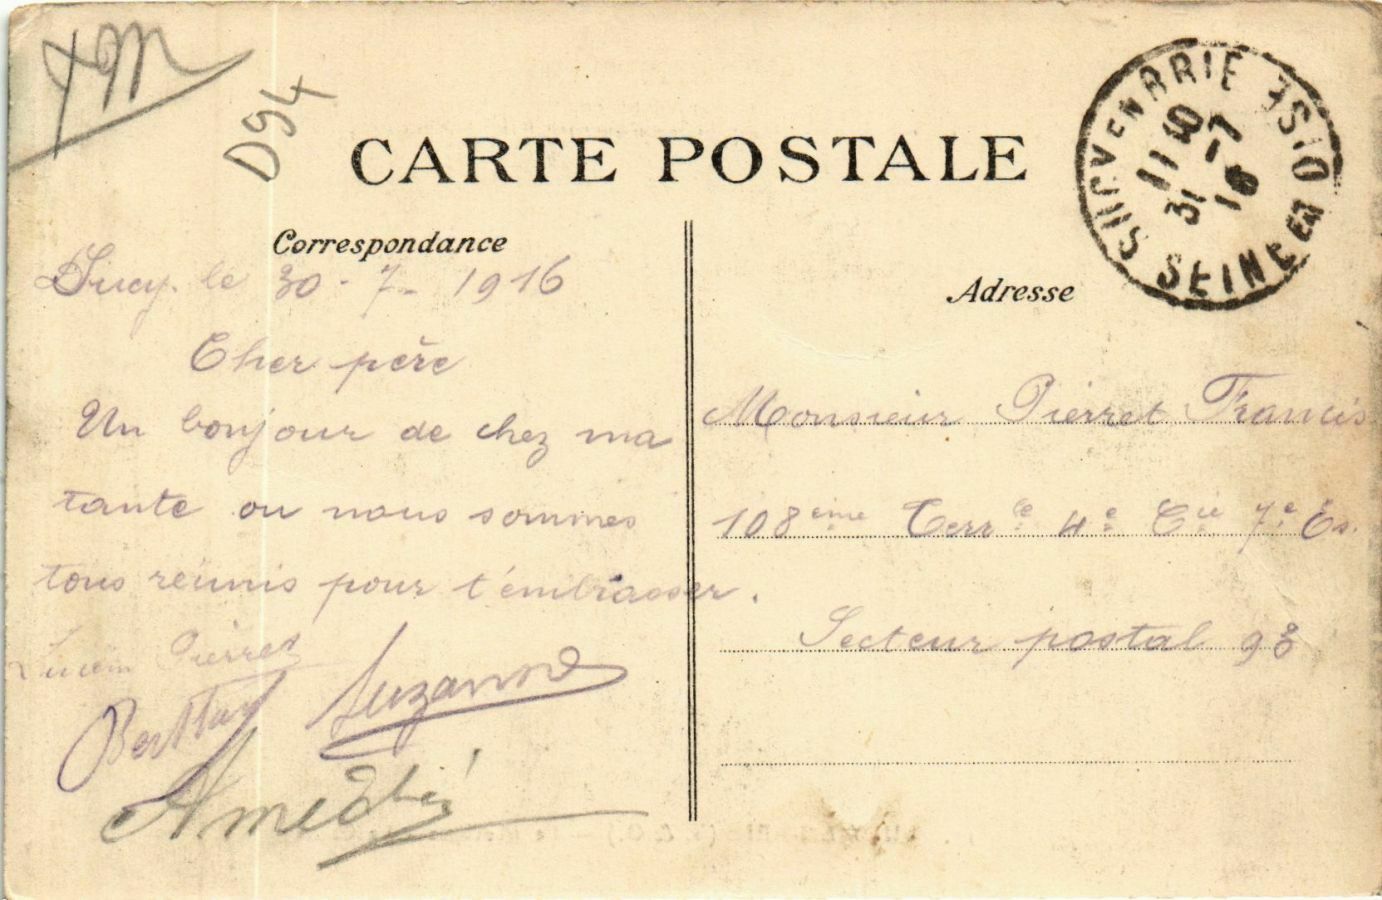 D94
CARTE POSTALE
SUCY EN BRIE SEINE ET OISE
11 50
31 -7
16
Correspondance
Adresse
Sucy. le 30 - 7 - 1916
Cher père
Un bonjour de chez ma
tante ou nous sommes
tous réunis pour t'embrasser.
Lucien Pierret
Suzanne
Berthay
Amédée
Monsieur Pierret Francis
108ème Terrle 4e Cie 7e Es.
Secteur postal 93